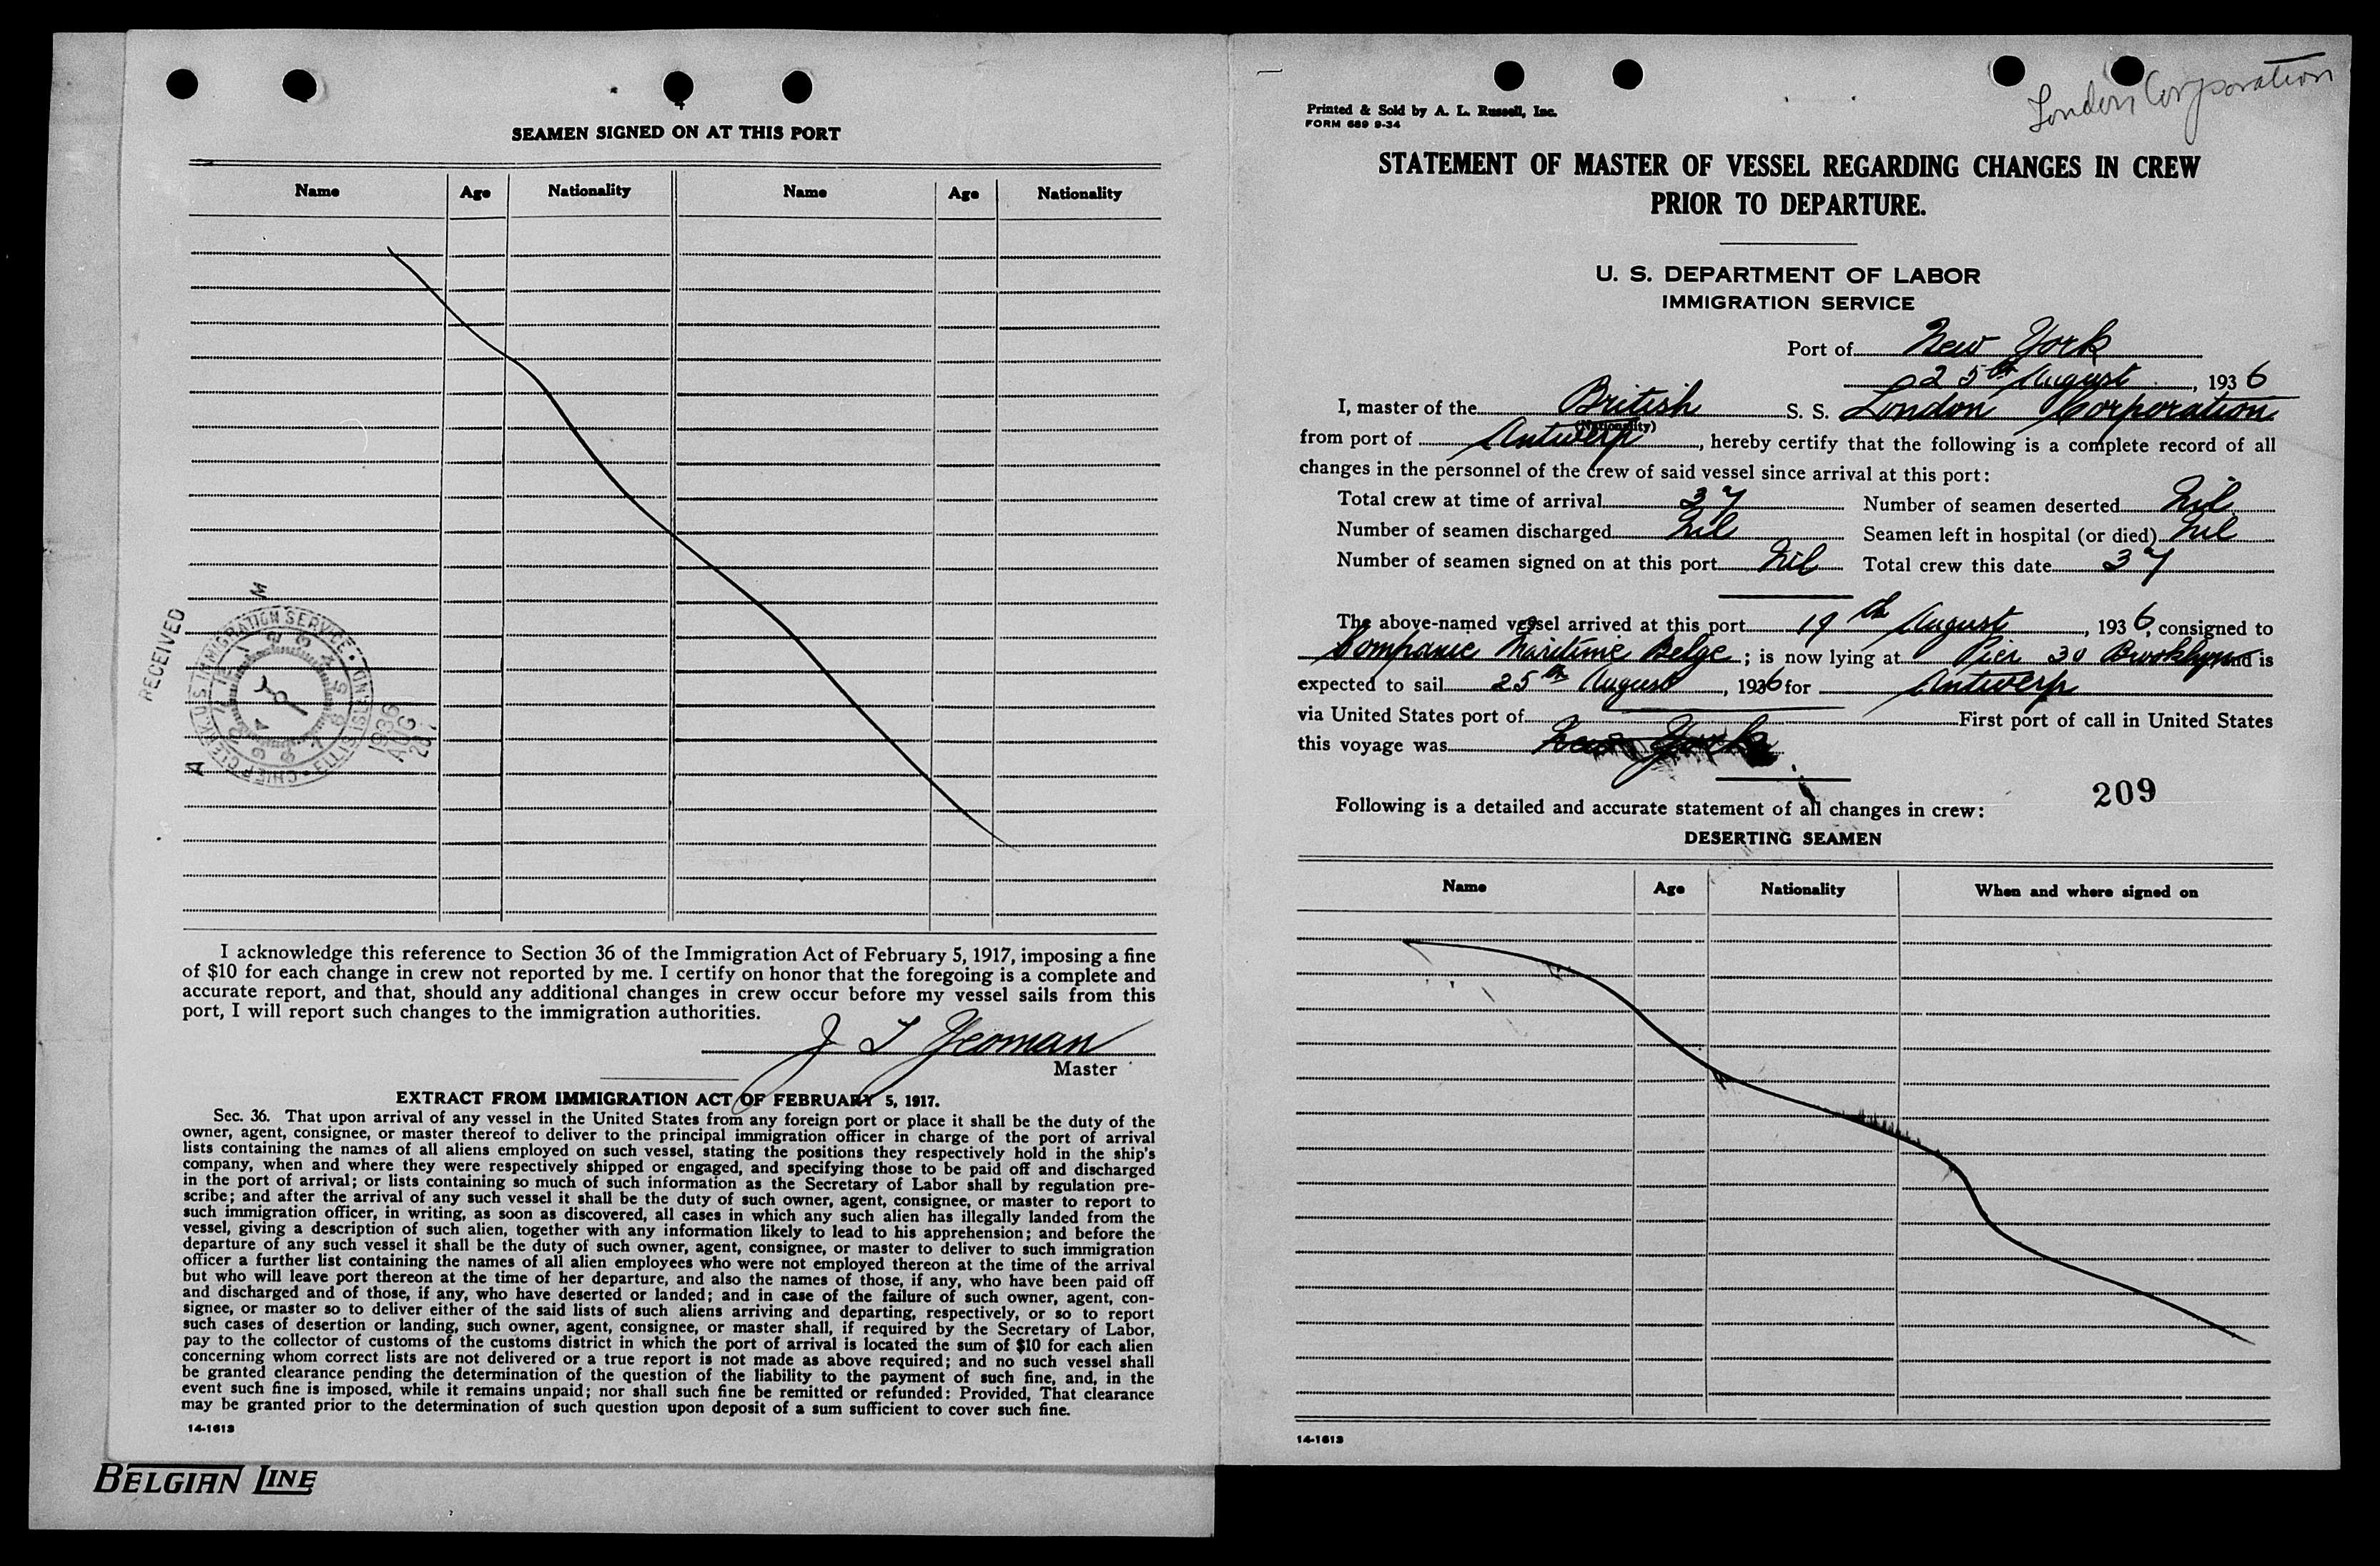 SEAMEN SIGNED ON AT THIS PORT
Name Age Nationality Name Age Nationality
RECEIVED
CHIEF CLERK U.S. IMMIGRATION SERVICE • ELLIS ISLAND
1936
AUG
I acknowledge this reference to Section 36 of the Immigration Act of February 5, 1917, imposing a fine
of $10 for each change in crew not reported by me. I certify on honor that the foregoing is a complete and
accurate report, and that, should any additional changes in crew occur before my vessel sails from this
port, I will report such changes to the immigration authorities.
J T Yeoman
Master
EXTRACT FROM IMMIGRATION ACT OF FEBRUARY 5, 1917.
Sec. 36. That upon arrival of any vessel in the United States from any foreign port or place it shall be the duty of the
owner, agent, consignee, or master thereof to deliver to the principal immigration officer in charge of the port of arrival
lists containing the names of all aliens employed on such vessel, stating the positions they respectively hold in the ship's
company, when and where they were respectively shipped or engaged, and specifying those to be paid off and discharged
in the port of arrival; or lists containing so much of such information as the Secretary of Labor shall by regulation pre-
scribe; and after the arrival of any such vessel it shall be the duty of such owner, agent, consignee, or master to report to
such immigration officer, in writing, as soon as discovered, all cases in which any such alien has illegally landed from the
vessel, giving a description of such alien, together with any information likely to lead to his apprehension; and before the
departure of any such vessel it shall be the duty of such owner, agent, consignee, or master to deliver to such immigration
officer a further list containing the names of all alien employees who were not employed thereon at the time of the arrival
but who will leave port thereon at the time of her departure, and also the names of those, if any, who have been paid off
and discharged and of those, if any, who have deserted or landed; and in case of the failure of such owner, agent, con-
signee, or master so to deliver either of the said lists of such aliens arriving and departing, respectively, or so to report
such cases of desertion or landing, such owner, agent, consignee, or master shall, if required by the Secretary of Labor,
pay to the collector of customs of the customs district in which the port of arrival is located the sum of $10 for each alien
concerning whom correct lists are not delivered or a true report is not made as above required; and no such vessel shall
be granted clearance pending the determination of the question of the liability to the payment of such fine, and, in the
event such fine is imposed, while it remains unpaid; nor shall such fine be remitted or refunded: Provided, That clearance
may be granted prior to the determination of such question upon deposit of a sum sufficient to cover such fine.
14-1613
BELGIAN LINE
London Corporation
Printed & Sold by A. L. Russell, Inc.
FORM 689 9-34
STATEMENT OF MASTER OF VESSEL REGARDING CHANGES IN CREW
PRIOR TO DEPARTURE.
U. S. DEPARTMENT OF LABOR
IMMIGRATION SERVICE
Port of New York
25th August, 1936
I, master of the British S. S. London Corporation
(Nationality)
from port of Antwerp, hereby certify that the following is a complete record of all
changes in the personnel of the crew of said vessel since arrival at this port:
Total crew at time of arrival 37 Number of seamen deserted Nil
Number of seamen discharged Nil Seamen left in hospital (or died) Nil
Number of seamen signed on at this port Nil Total crew this date 37
The above-named vessel arrived at this port 19th August, 1936, consigned to
Companie Maritime Belge; is now lying at Pier 30 Brooklyn and is
expected to sail 25th August, 1936 for Antwerp
via United States port of First port of call in United States
this voyage was New York
209
Following is a detailed and accurate statement of all changes in crew:
DESERTING SEAMEN
Name Age Nationality When and where signed on
14-1613